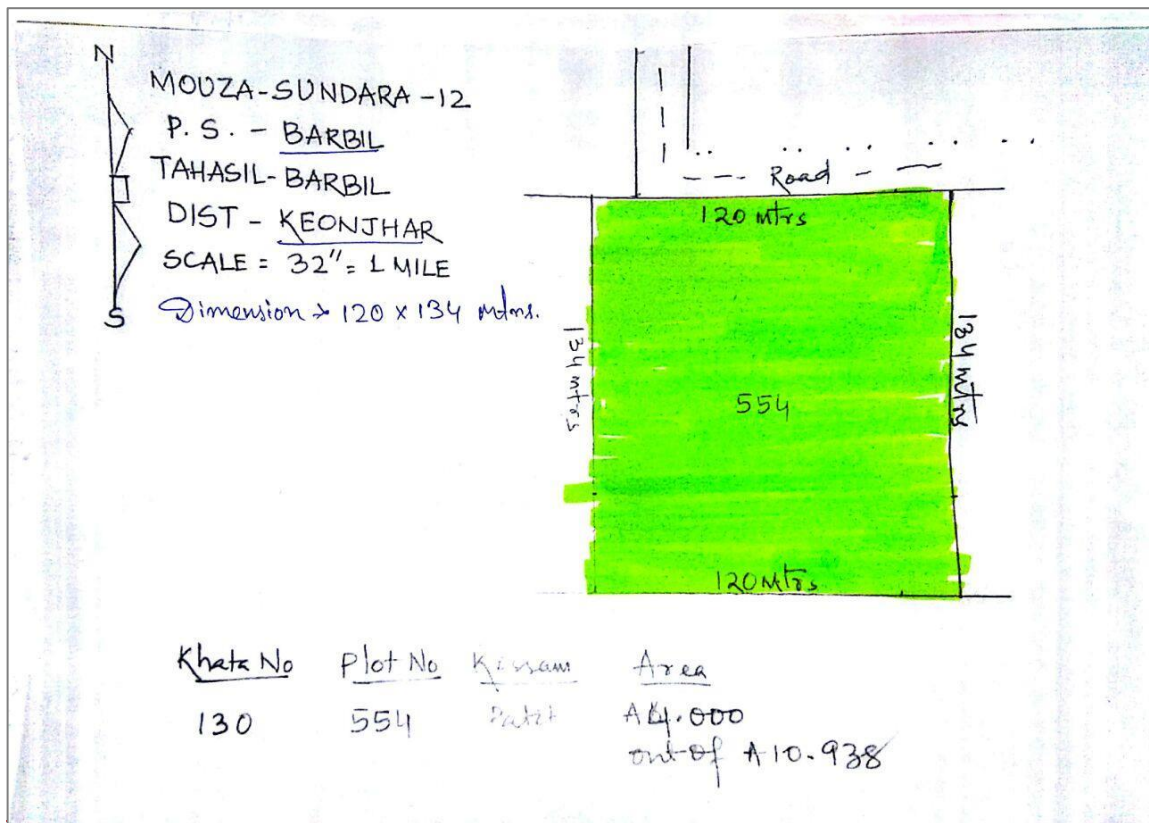 N
MOUZA-SUNDARA-12
P.S. - BARBIL
TAHASIL-BARBIL
DIST - KEONJHAR
SCALE = 32" = 1 MILE
Dimension → 120 x 134 mtrs.
S
--- Road - --
120 mtrs
134 mtrs
134 mtrs
554
120 Mtrs
Khata No Plot No Kissam Area
130 554 Patit A4.000
out of A10.938